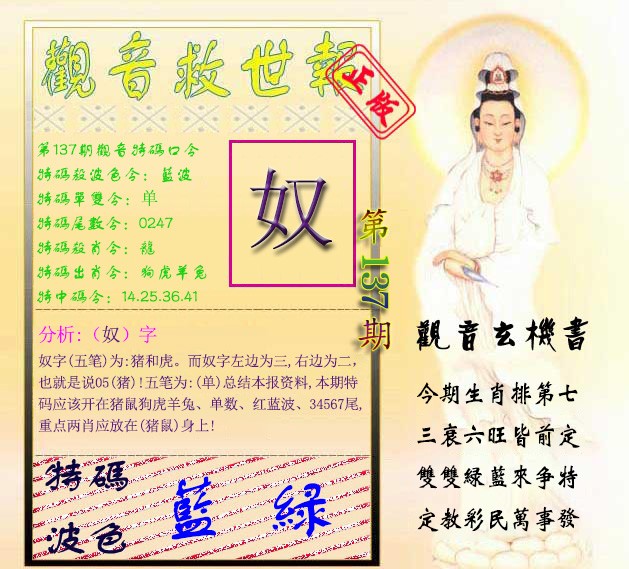 觀音救世報
正版
第137期觀音特碼口令
特碼殺波色令：藍波
特碼單雙令：单
特碼尾數令：0247
特碼殺肖令：龍
特碼出肖令：狗虎羊兔
特中碼令：14.25.36.41
奴
第137期
分析:（奴）字
奴字(五笔)为:猪和虎。而奴字左边为三,右边为二，
也就是说05(猪)!五笔为:(单)总结本报资料,本期特
码应该开在猪鼠狗虎羊兔、单数、红蓝波、34567尾,
重点两肖应放在(猪鼠)身上!
特碼
波色
藍綠
觀音玄機書
今期生肖排第七
三衰六旺皆前定
雙雙綠藍來爭特
定教彩民萬事發